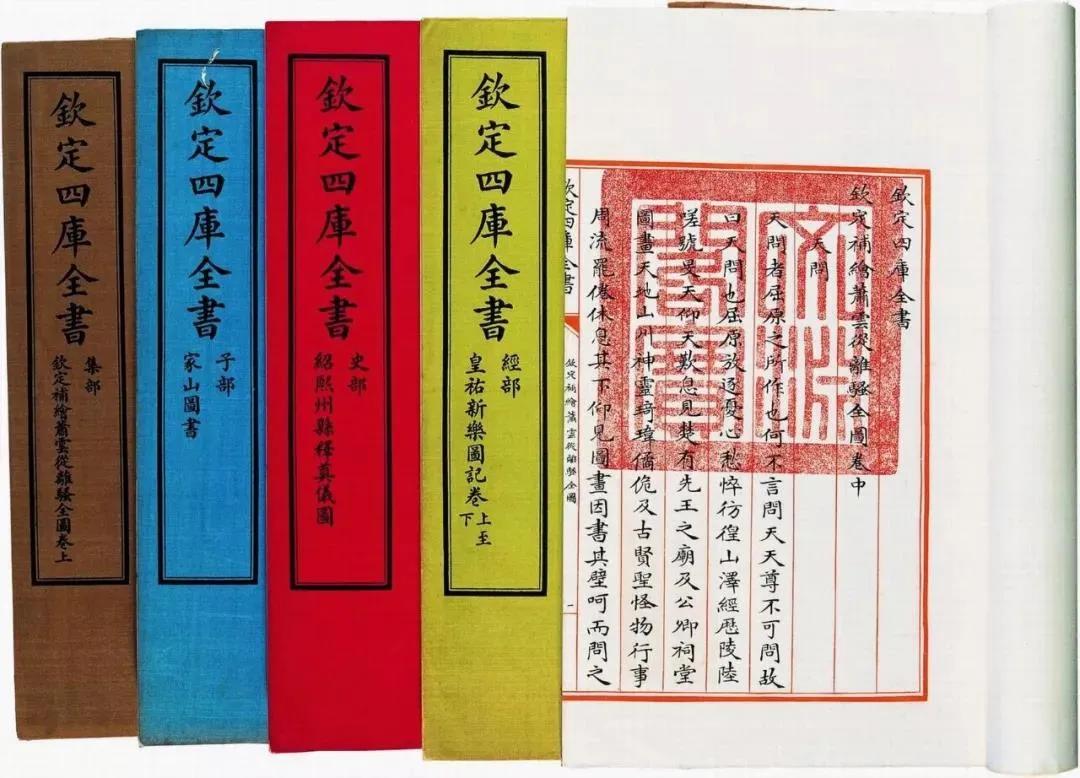 欽定四庫全書
欽定補繪蕭雲從離騷全圖卷中
天問
天問者屈原之所作也何不言問天天尊不可問故
曰天問也屈原放逐憂心愁悴彷徨山澤經歷陵陸
嗟號旻天仰天歎息見楚有先王之廟及公卿祠堂
圖畫天地山川神靈琦瑋僪佹及古賢聖怪物行事
周流罷倦休息其下仰見圖畫因書其壁呵而問之
欽定四庫全書
欽定補繪蕭雲從離騷全圖
一
文淵
閣寶
欽定四庫全書
經部
皇祐新樂圖記卷上至下
欽定四庫全書
史部
紹熙州縣釋奠儀圖
欽定四庫全書
子部
家山圖書
欽定四庫全書
集部
欽定補繪蕭雲從離騷全圖卷上